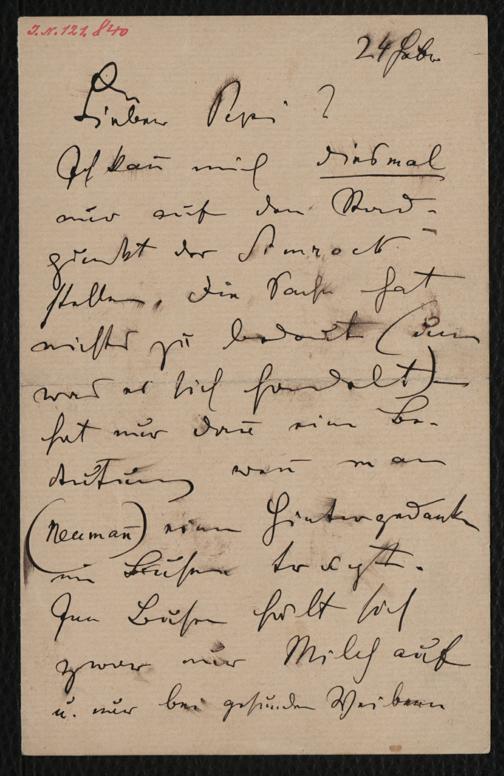 I.N. 121.840
24 Febr
Lieber Pepi!
Ich kan̄ mich diesmal
nur auf den Stand-
punkt der Simrock
stellen, die Sache hat
nichts zu bedeut (um
was es sich handelt)
hat nur dan̄ eine Be-
deutung wen̄ man
(Neuman̄) einen Hintergedanken
im Busen traegt.
Im Busen hält sich
zwar nur Milch auf
u. nur bei gesunden Weibern